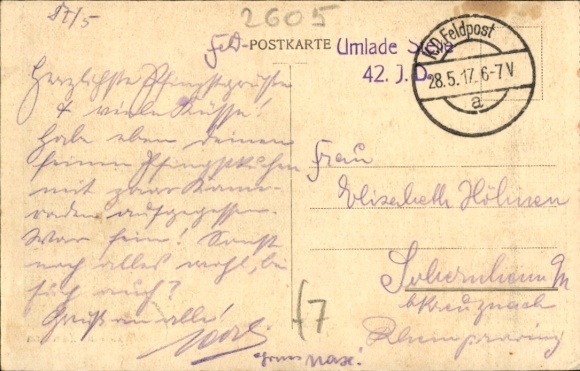 27/5
2605
Feld-POSTKARTE
Umlade Stelle
42. J. D.
K.D. Feldpost
28.5.17. 6-7 V
a
Herzlichste Pfingstgrüsse
& viele Küsse!
Hab eben deinen
feinen Pfingstkuchen
mit paar Kame-
raden aufgegessen.
War fein! Sonst
noch alles wohl, bei
euch auch?
Gruß an alle!
Frau
Elisabeth
Sobernheim
b Kreuznach
Rheinprovinz
f7